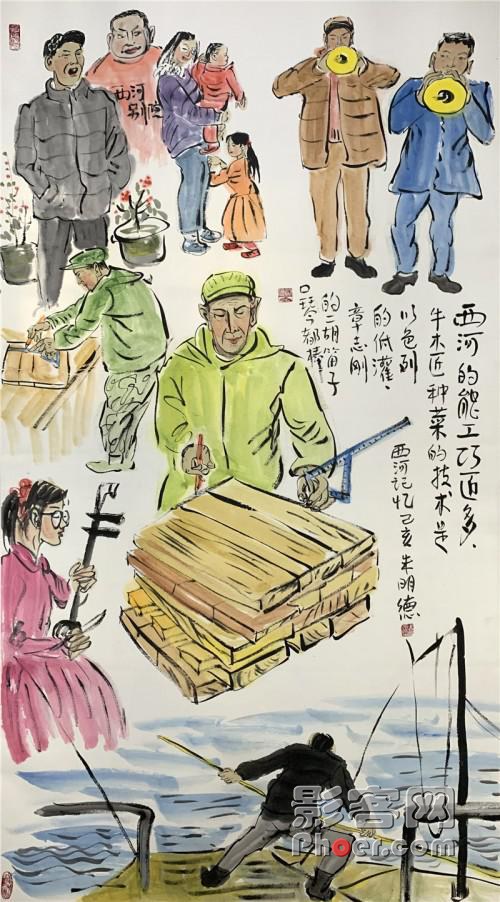 西河
别院
西河的能工巧匠多、
牛木匠种菜的技术是
以色列
的低灌、
章志刚
的二胡笛子
口琴都棒
西河记忆己亥朱明德
影客网
Phoer.com